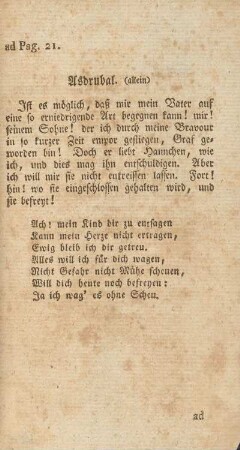 ad Pag. 21.
Asdrubal. (allein)
Ist es möglich, daß mir mein Vater auf
eine so erniedrigende Art begegnen kann! mir!
seinem Sohne! der ich durch meine Bravour
in so kurzer Zeit empor gestiegen, Graf ge-
worden bin! Doch er liebt Hannchen, wie
ich, und dies mag ihn entschuldigen. Aber
ich will mir sie nicht entreissen lassen. Fort!
hin! wo sie eingeschlossen gehalten wird, und
sie befreyt!
Ach! mein Kind dir zu entsagen
Kann mein Herze nicht ertragen,
Ewig bleib ich dir getreu.
Alles will ich für dich wagen,
Nicht Gefahr nicht Mühe scheuen,
Will dich heute noch befreyen:
Ja ich wag' es ohne Scheu.
ad